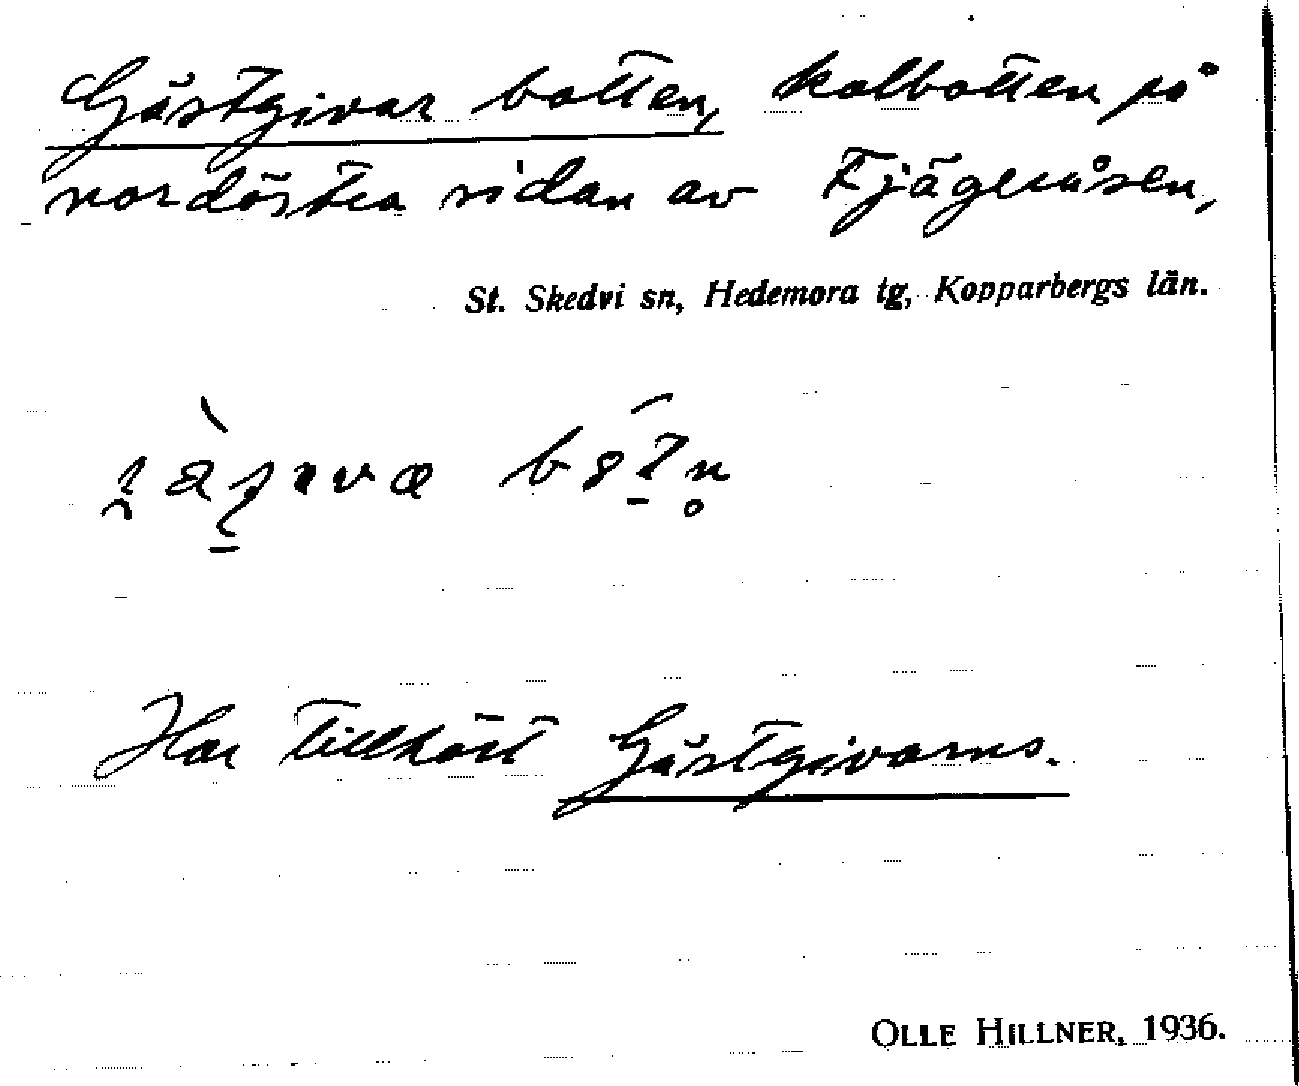 Gästgivar botten, kolbotten på
nordöstra sidan av Fjägeråsen,
St. Skedvi sn, Hedemora tg, Kopparbergs län.
Har tillhört Gästgivarns.
OLLE HILLNER, 1936.